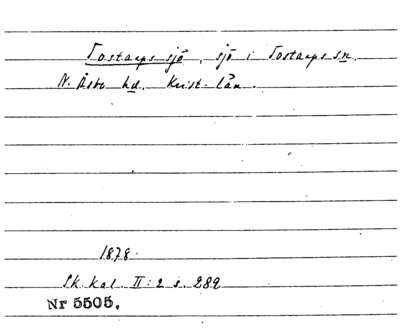 Tostarps sjö, sjö i Tostarps sn.
N. Åsbo hd. Krist. län.
1878.
Sk. kal. II: 2 s. 289
Nr 5505.